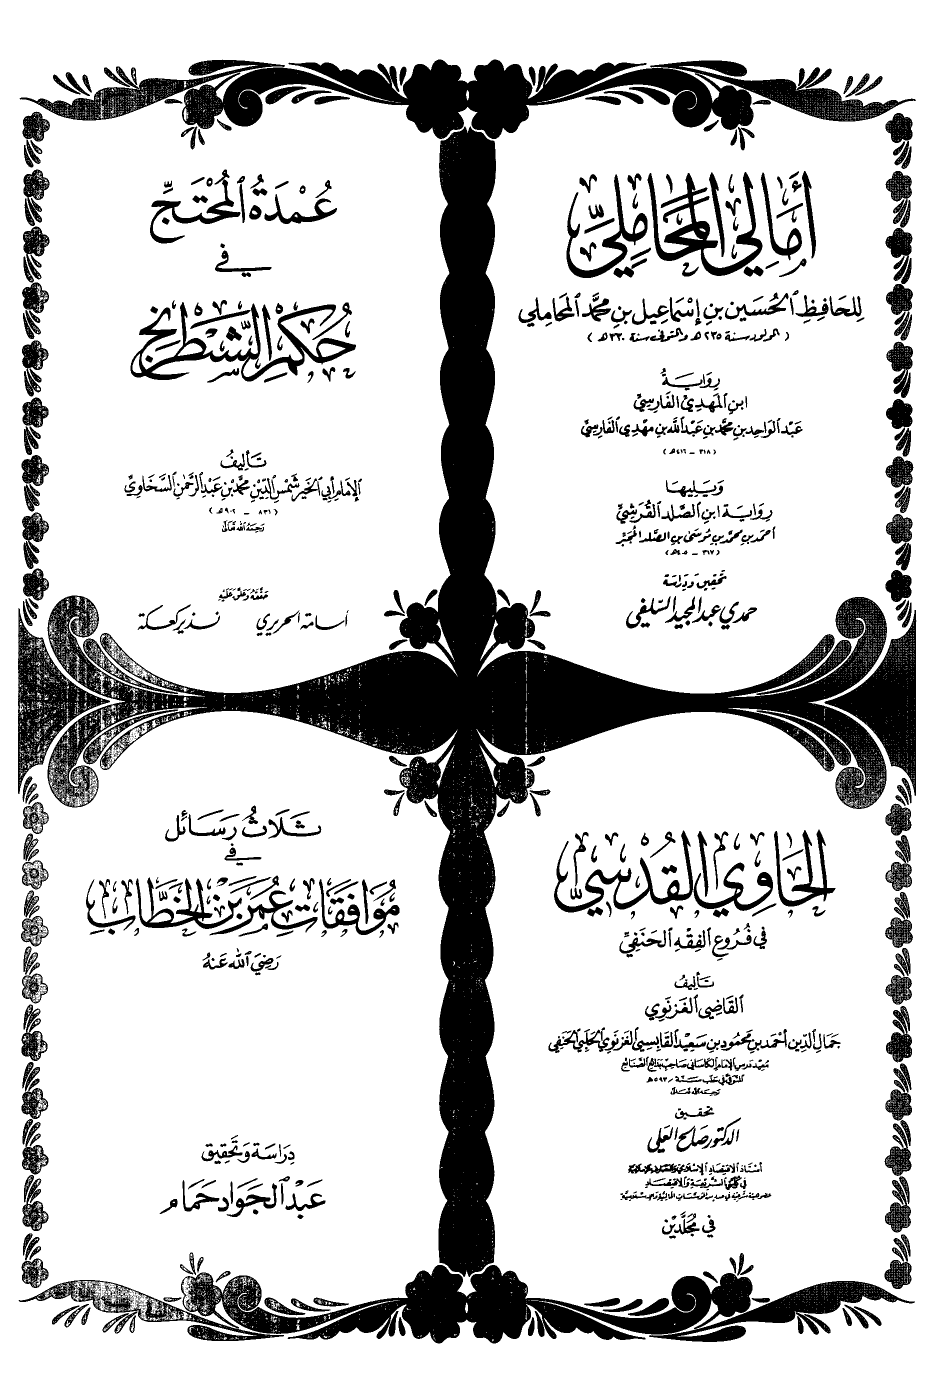 أَمَالِي المَحَامِلِيِّ
لِلحَافِظِ الحُسَين بنِ إسْمَاعِيل بنِ محمَّد المحَامِلي
( المولود سنة ٢٣٥ هـ والمتوفى سنة ٣٣٠ هـ )
رِوَايَةُ
ابنِ المَهدِيْ الفَارِسِيِّ
عَبْد الوَاحِد بنِ محمَّد بنِ عَبْد اللَّه بنِ مهْدِي الفَارِسِيِّ
( ٣١٨ - ٤١٦ هـ )
وَيَليهَا
رِوَايَة ابنِ الصَّلت القُرَشِيِّ
أحمَد بنِ محمَّد بنِ مُوسَى بنِ الصَّلت المجبّر
( ٣١٧ - ٤٠٥ هـ )
تحقيق ودراسة
حمدي عبد المجيد السّلفي
عُمْدَةُ المُحْتَجِّ
في
حُكمِ الشَّطرَنج
تَأليفُ
الإمَام أبي الخَير شَمْسِ الدِّين محمَّد بْنِ عَبدِ الرَّحمٰنِ السَّخَاوِيِّ
( ٨٣١ - ٩٠٢ هـ )
رَحِمَهُ الله تَعَالَى
حَقَّقَهُ وَعَلَّقَ عَلَيْهِ
أسامة الحريري نذير كعكة
الحَاوِي القُدْسِيّ
في فُرُوعِ الفِقْهِ الحَنَفِيِّ
تَأليفُ
القَاضِي الغَزنَوِي
جَمَالِ الدِّين أحْمَد بنِ محْمُود بنِ سَعِيْد القَابِسِيي الغَزنَوِي الحَلَبي الحَنَفي
مُعِيْد دَرسِ الإمَام الكَاسَاني صَاحِب بَدَائِع الصَّنَائِع
المتوفى في حلب سنة ٥٩٣ هـ
رحمه الله تعالى
تحقيق
الدكتور صَالح العَلي
أستاذ الاقتصاد الإسلامي
في كليتي الشريعة والاقتصاد
في مُجَلَّدَيْن
ثَلَاثُ رَسَائل
في
مُوَافَقَاتِ عُمَرَ بْن الخَطَّابِ
رَضِيَ اللّه عَنهُ
دِرَاسَة وَتَحْقِيق
عَبْد الجَوَاد حَمَام